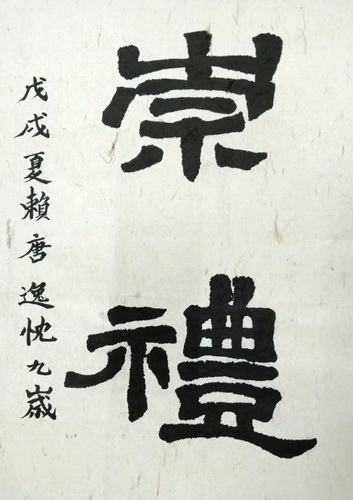 崇禮
戊戌夏賴唐逸忱九歲